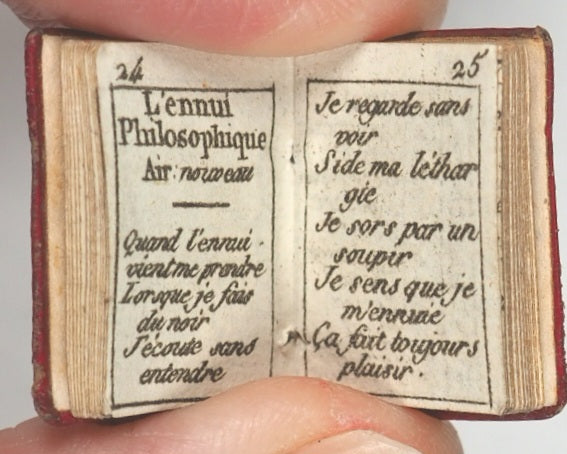 24
L'ennui
Philosophique
Air nouveau
Quand l'ennui
vient me prendre
Lorsque je fais
du noir
J'écoute sans
entendre
25
Je regarde sans
voir
Si de ma léthar
gie
Je sors par un
soupir
Je sens que je
m'ennuie
Ça fait toujours
plaisir.